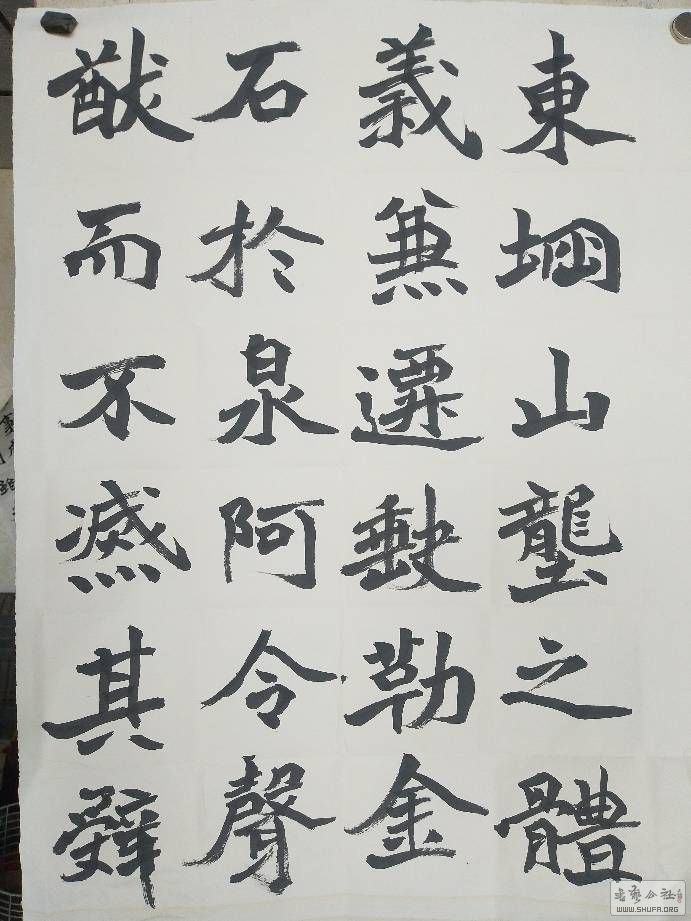 東堈山壟之體
義兼遷缺勒金
石於泉阿令聲
猷而不滅其辭
书艺公社
WWW.SHUFA.ORG